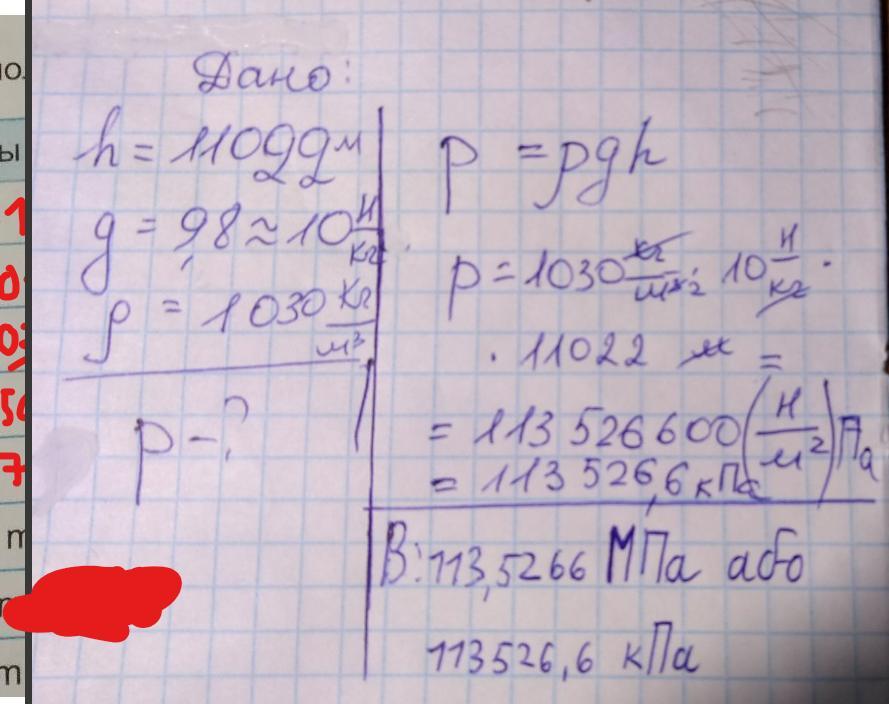 Дано:
h = 11022 м
g = 9,8 ≈ 10 Н/кг
ρ = 1030 кг/м³
p - ?
p = ρgh
p = 1030 кг/м³ · 10 Н/кг ·
· 11022 м =
= 113 526 600 (Н/м²) Па
= 113 526,6 кПа
В: 113,5266 МПа або
113526,6 кПа